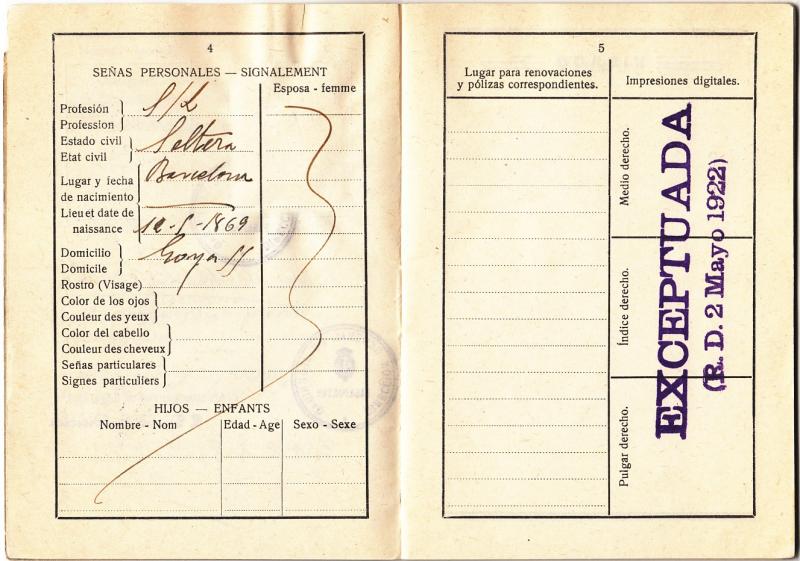 4
SEÑAS PERSONALES — SIGNALEMENT
Esposa - femme
Profesión S/L
Profession
Estado civil Soltera
Etat civil
Lugar y fecha Barcelona
de nacimiento
Lieu et date de
naissance -1869
Domicilio Goya
Domicile
Rostro (Visage)
Color de los ojos
Couleur des yeux
Color del cabello
Couleur des cheveux
Señas particulares
Signes particuliers
HIJOS — ENFANTS
Nombre - Nom Edad - Age Sexo - Sexe
5
Lugar para renovaciones
y pólizas correspondientes.
Impresiones digitales.
Medio derecho.
Índice derecho.
Pulgar derecho.
EXCEPTUADA
(R. D. 2 Mayo 1922)